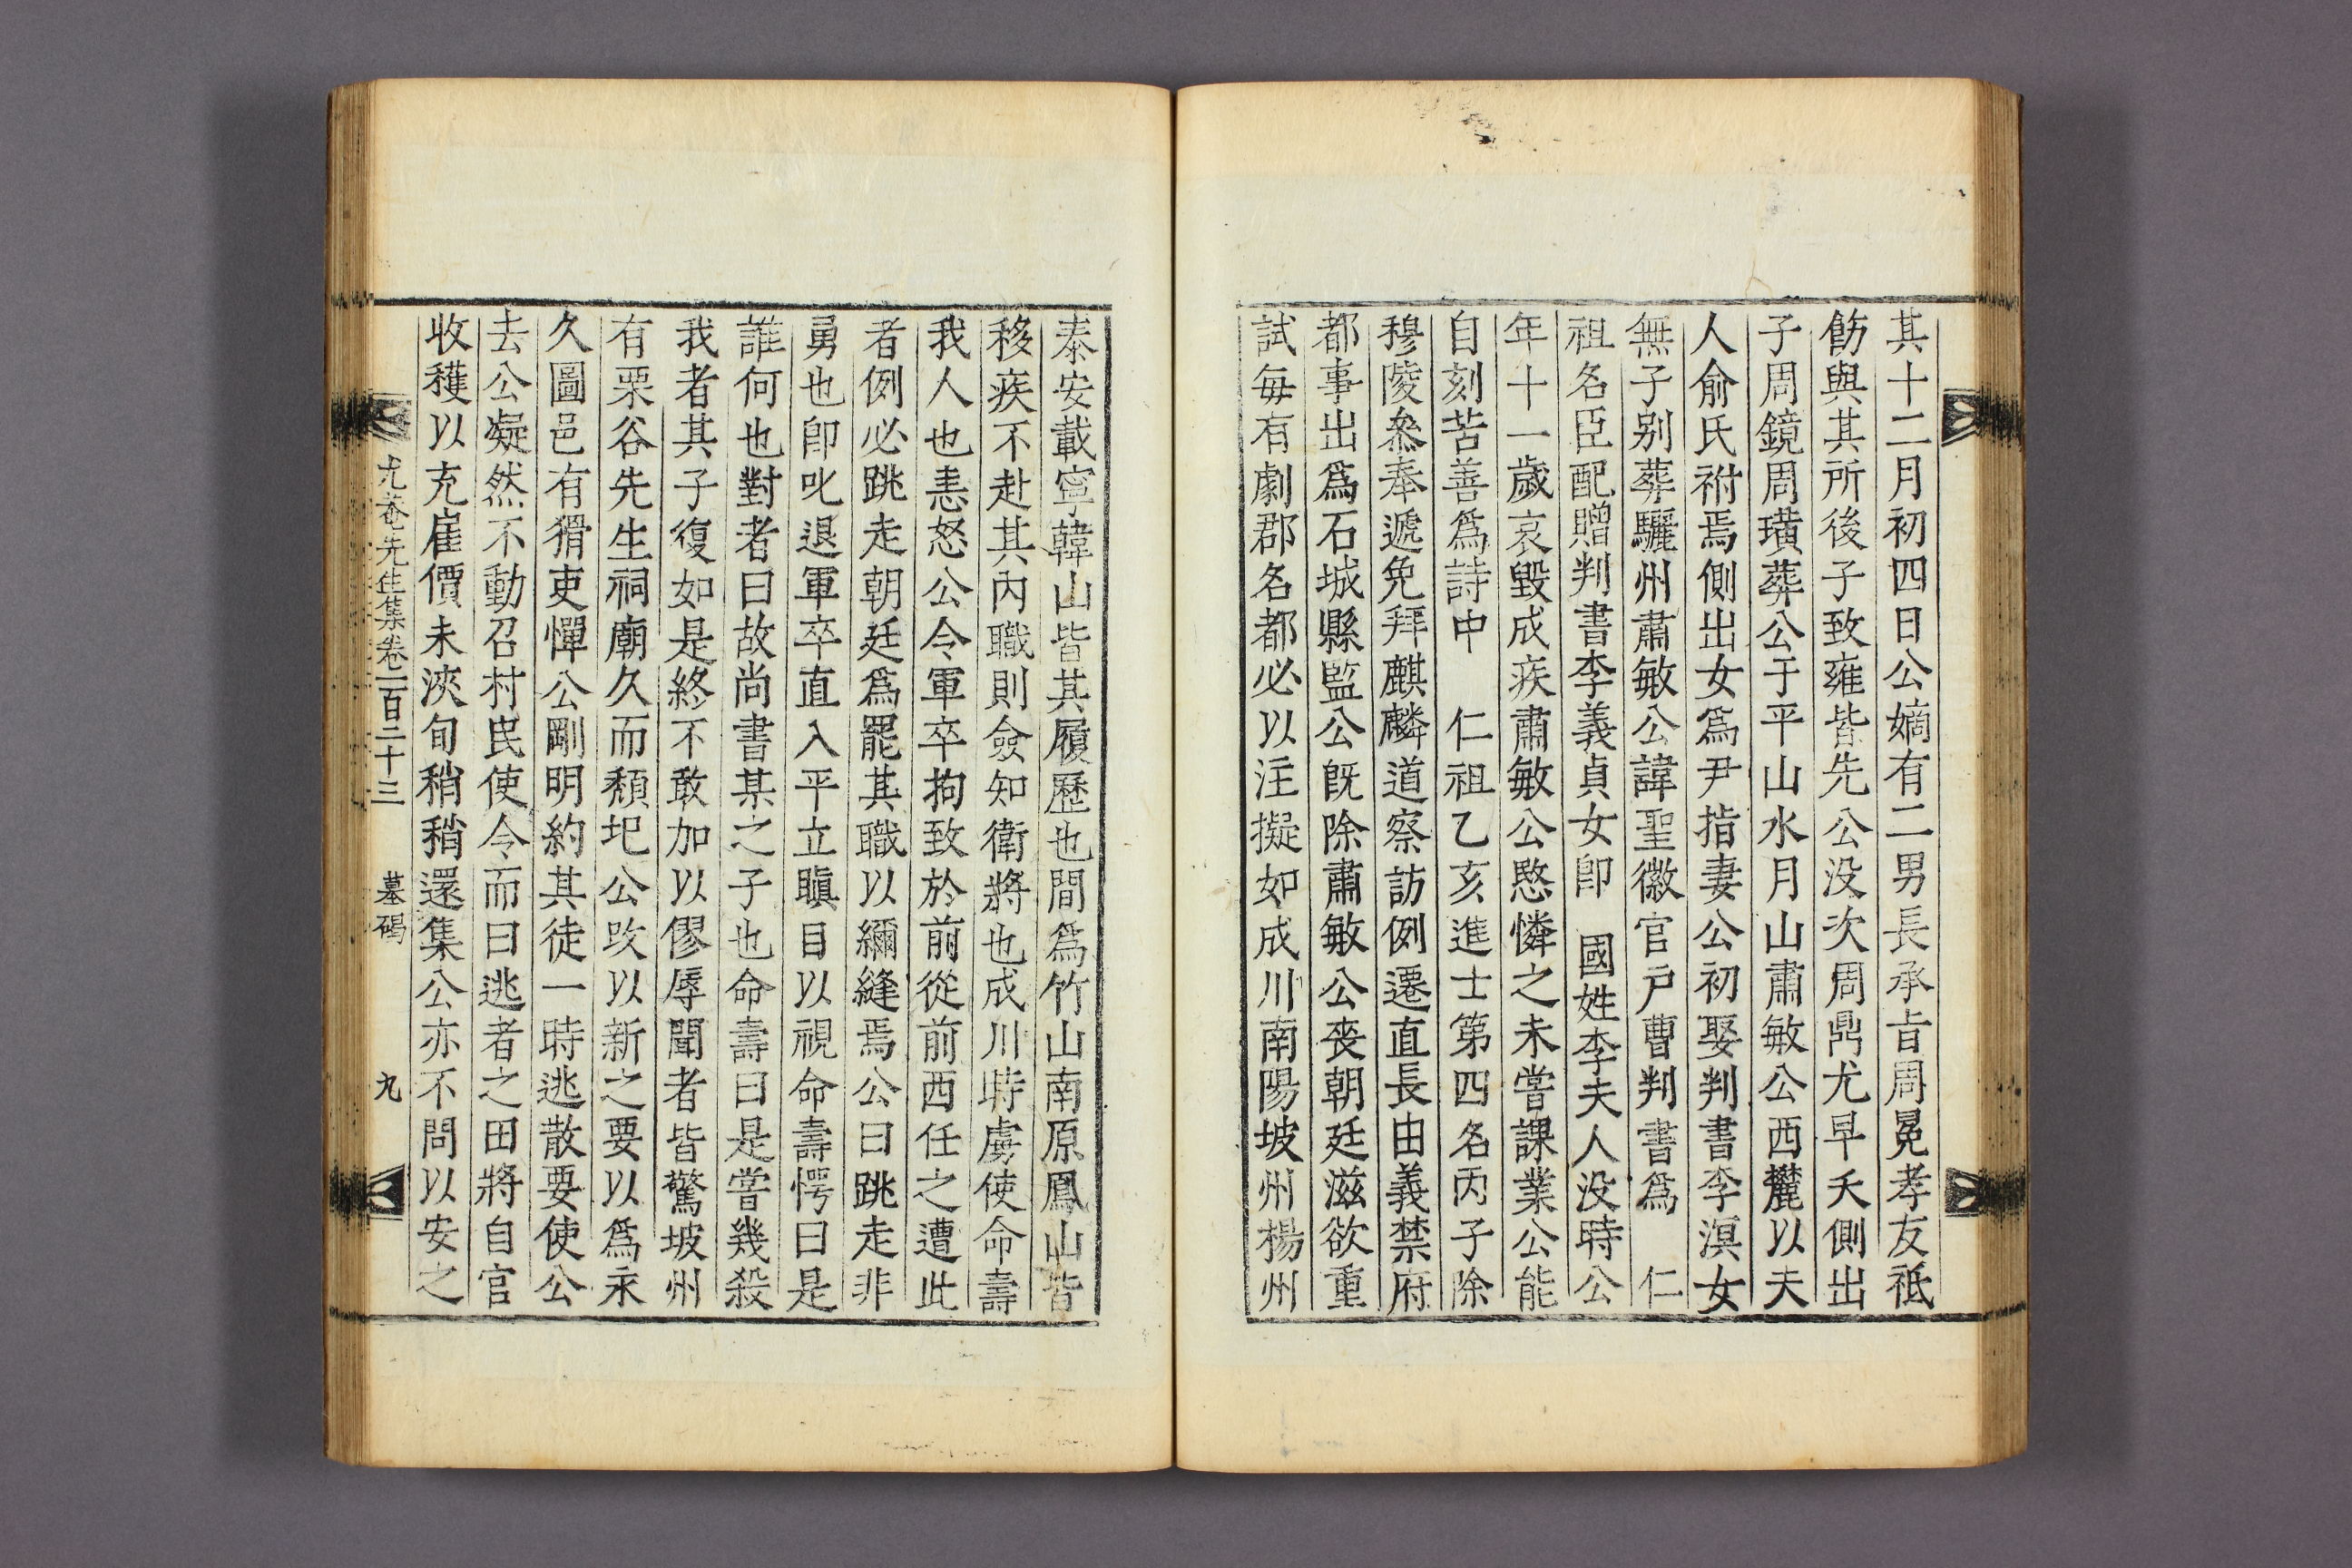 其十二月初四日公嫡有二男長承旨周冕孝友祗
飭與其所後子致雍皆先公没次周鼎尤早夭側出
子周鏡周璜葬公于平山水月山肅敏公西麓以夫
人俞氏祔焉側出女爲尹指妻公初娶判書李溟女
無子别葬驪州肅敏公諱聖徽官戸曹判書爲 仁
祖名臣配贈判書李義貞女卽 國姓李夫人没時公
年十一歲哀毀成疾肅敏公愍憐之未嘗課業公能
自刻苦善爲詩中 仁祖乙亥進士第四名丙子除
穆陵叅奉遞免拜麒麟道察訪例遷直長由義禁府
都事出爲石城縣監公旣除肅敏公喪朝廷滋欲重
試每有劇郡名都必以注擬如成川南陽坡州楊州
泰安載寧韓山皆其履歷也間爲竹山南原鳳山皆
移疾不赴其内職則僉知衛將也成川時虜使命壽
我人也恚怒公令軍卒拘致於前從前西任之遭此
者例必跳走朝廷爲罷其職以繝縫焉公曰跳走非
勇也卽叱退軍卒直入平立瞋目以視命壽愕曰是
誰何也對者曰故尚書某之子也命壽曰是嘗幾殺
我者其子復如是終不敢加以僇辱聞者皆驚坡州
有栗谷先生祠廟久而頽圯公改以新之要以爲永
久圖邑有猾吏憚公剛明約其徒一時逃散要使公
去公凝然不動召村民使令而曰逃者之田將自官
收穫以充雇價未浹旬稍稍還集公亦不問以安之
尤菴先生集卷一百二十三 墓碣 九